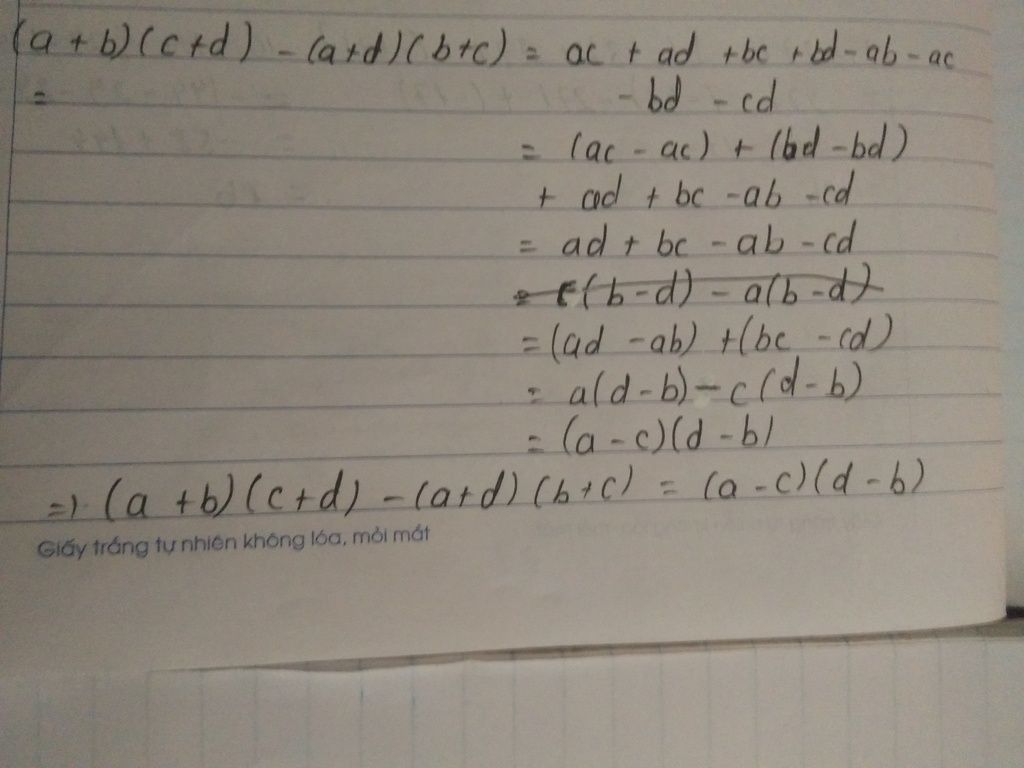 (a + b)(c+d) - (a+d)(b+c) = ac + ad +bc +bd-ab-ac
= - bd - cd
= (ac - ac) + (bd -bd)
+ ad + bc -ab -cd
= ad + bc - ab - cd
= c(b-d) - a(b-d)
= (ad - ab) +(bc - cd)
= a(d-b) - c(d-b)
= (a-c)(d-b)
=> (a +b)(c+d) -(a+d)(b+c) = (a-c)(d-b)
Giấy trắng tự nhiên không lóa, mỏi mắt